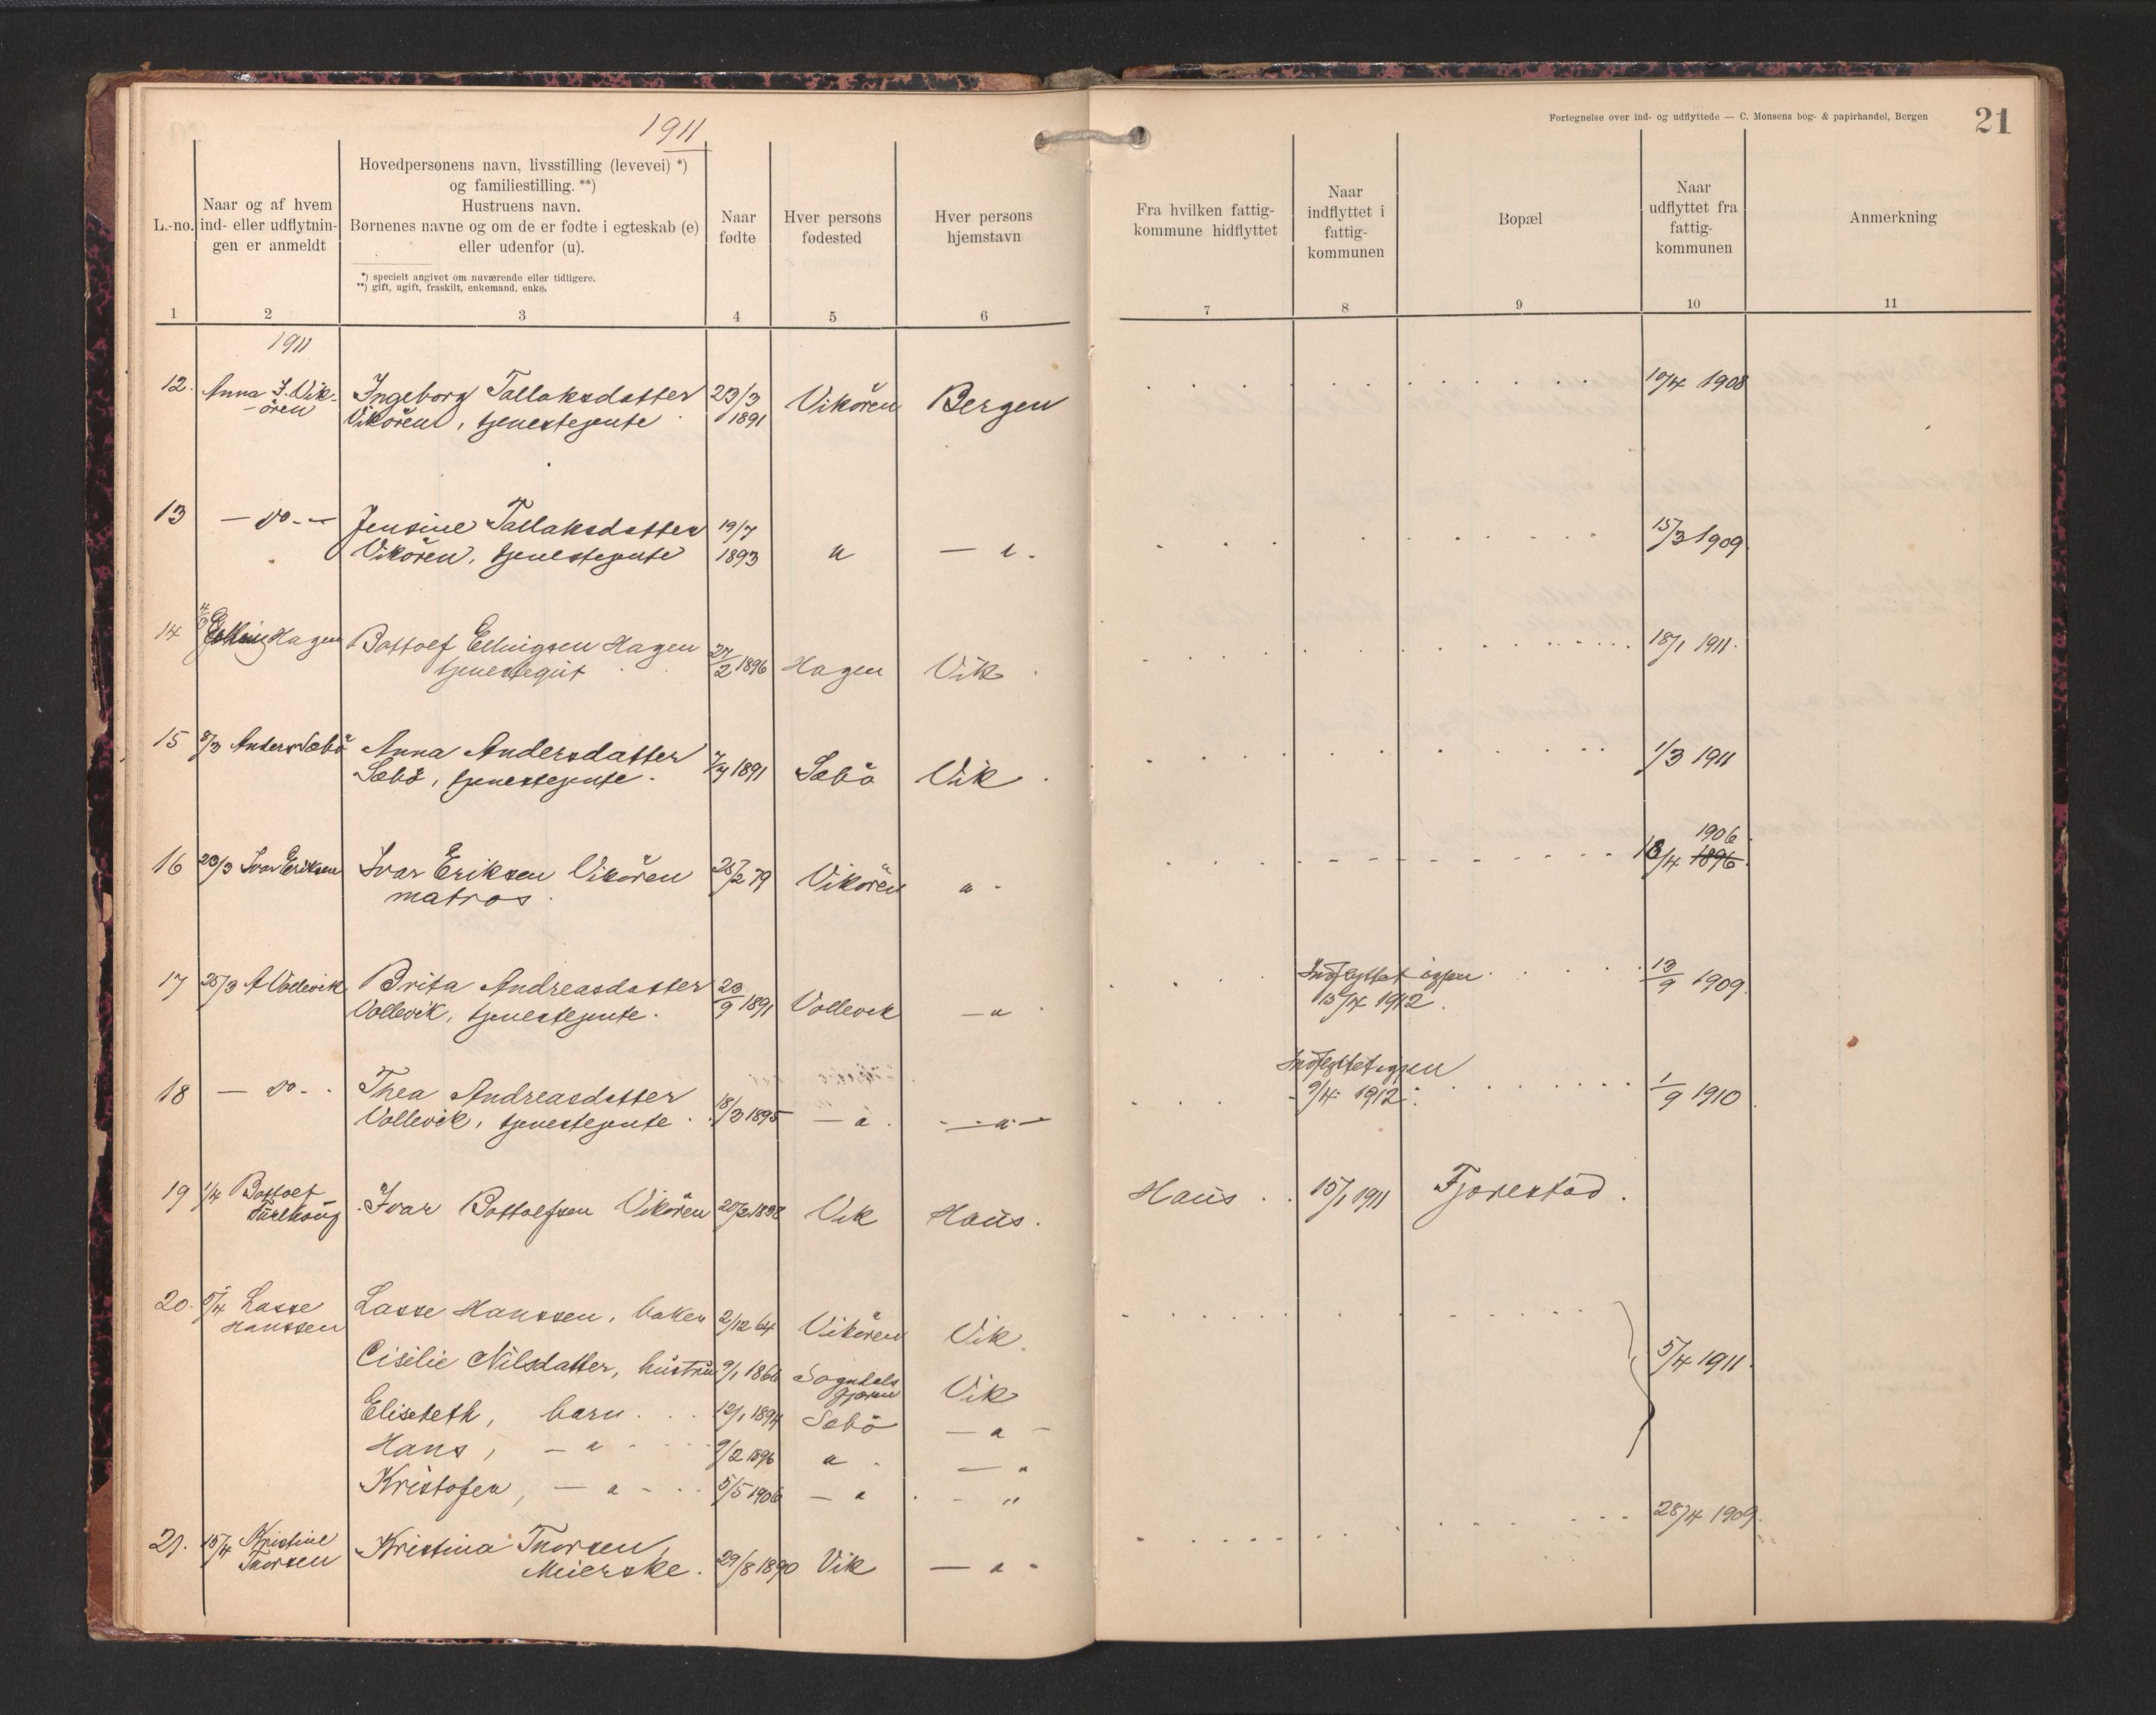 1911
Fortegnelse over ind- og udflyttede — C. Monsens bog- & papirhandel, Bergen
21
L.-no.
Naar og af hvem
ind- eller udflytnin-
gen er anmeldt
Hovedpersonens navn, livsstilling (levevei) *)
og familiestilling. **)
Hustruens navn.
Børnenes navne og om de er fødte i egteskab (e)
eller udenfor (u).
*) specielt angivet om nuværende eller tidligere.
**) gift, ugift, fraskilt, enkemand, enke.
Naar
fødte
Hver persons
fødested
Hver persons
hjemstavn
Fra hvilken fattig-
kommune hidflyttet
Naar
indflyttet i
fattig-
kommunen
Bopæl
Naar
udflyttet fra
fattig-
kommunen
Anmerkning
1 2 3 4 5 6 7 8 9 10 11
1911
12. Anna I. Vik- Ingeborg Tallaksdatter 23/3 Vikören Bergen 10/4 1908
ören Vikören, tjenestejente 1891
13 — do — Jensine Tallaksdatter 19/7 15/3 1909
Vikören, tjenestejente 1893 " — " -
14 Hagen Bottolf Ellingsen Hagen 27/2 1896 Hagen Vik 18/1 1911
tjenestegut
15 8/3 Anders Sæbö Anna Andersdatter 7/4 1891 Sæbö Vik 1/3 1911
Sæbö, tjenestejente
1906
16 23/3 Ivar Eriksen Ivar Eriksen Vikören 28/2 79 Vikören " - 18/4 1896
matros
17 25/3 A Vollevik Brita Andreasdatter 23/9 1891 Vollevik — " Indflyttet igjen 13/9 1909
Vollevik, tjenestejente 15/4 1912
18 — do - Thea Andreasdatter 18/3 1895 — " — " — Indflyttet igjen 1/9 1910
Vollevik, tjenestejente 9/4 1912
19 1/4 Bottolf Ivar Bottolfsen Vikören 20/2 1898 Vik Haus. Haus 15/1 1911 Fjærestad.
20. 5/4 Lasse Lasse Hanssen, baker 2/12 64 Vikören Vik
Hanssen
Cisilie Nilsdatter, hustru 9/1 1866 Sogndals Vik 5/4 1911
fjøren
Elisebeth, barn 12/1 1894 Sæbö — " —
Hans, — " - 9/2 1896 " — "
Kristofer, — " - 5/5 1906 — " - "
21. 15/4 Kristine Kristina Thorsen, 29/8 1890 Vik — " - 28/4 1909
Thorsen Meierske.